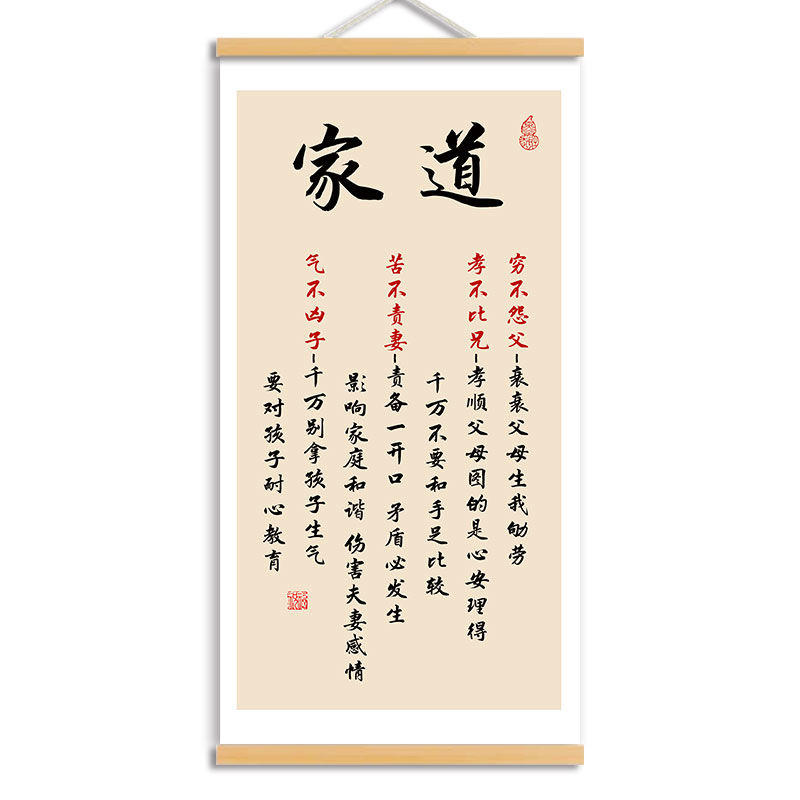 家道
穷不怨父-衰衰父母生我劬劳
孝不比兄-孝顺父母图的是心安理得
千万不要和手足比较
苦不责妻-责备一开口 矛盾必发生
影响家庭和谐 伤害夫妻感情
气不凶子-千万别拿孩子生气
要对孩子耐心教育